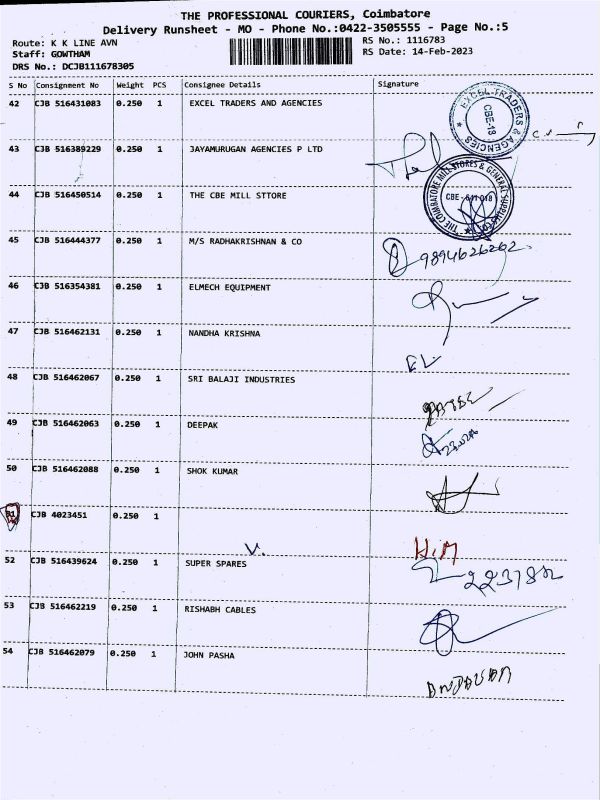 THE PROFESSIONAL COURIERS, Coimbatore
Delivery Runsheet - MO - Phone No.:0422-3505555 - Page No.:5
Route: K K LINE AVN RS No.: 1116783
Staff: GOWTHAM RS Date: 14-Feb-2023
DRS No.: DCJB111678305
S No Consignment No Weight PCS Consignee Details Signature
42 CJB 516431083 0.250 1 EXCEL TRADERS AND AGENCIES
EXCEL TRADERS & AGENCIES
CBE-18
43 CJB 516389229 0.250 1 JAYAMURUGAN AGENCIES P LTD
44 CJB 516450514 0.250 1 THE CBE MILL STTORE
THE COIMBATORE MILL STORES & GENERAL
CBE - 641 018
45 CJB 516444377 0.250 1 M/S RADHAKRISHNAN & CO
9894626262
46 CJB 516354381 0.250 1 ELMECH EQUIPMENT
47 CJB 516462131 0.250 1 NANDHA KRISHNA
48 CJB 516462067 0.250 1 SRI BALAJI INDUSTRIES
49 CJB 516462063 0.250 1 DEEPAK
50 CJB 516462088 0.250 1 SHOK KUMAR
51 CJB 4023451 0.250 1
V. H.M
52 CJB 516439624 0.250 1 SUPER SPARES
53 CJB 516462219 0.250 1 RISHABH CABLES
54 CJB 516462079 0.250 1 JOHN PASHA